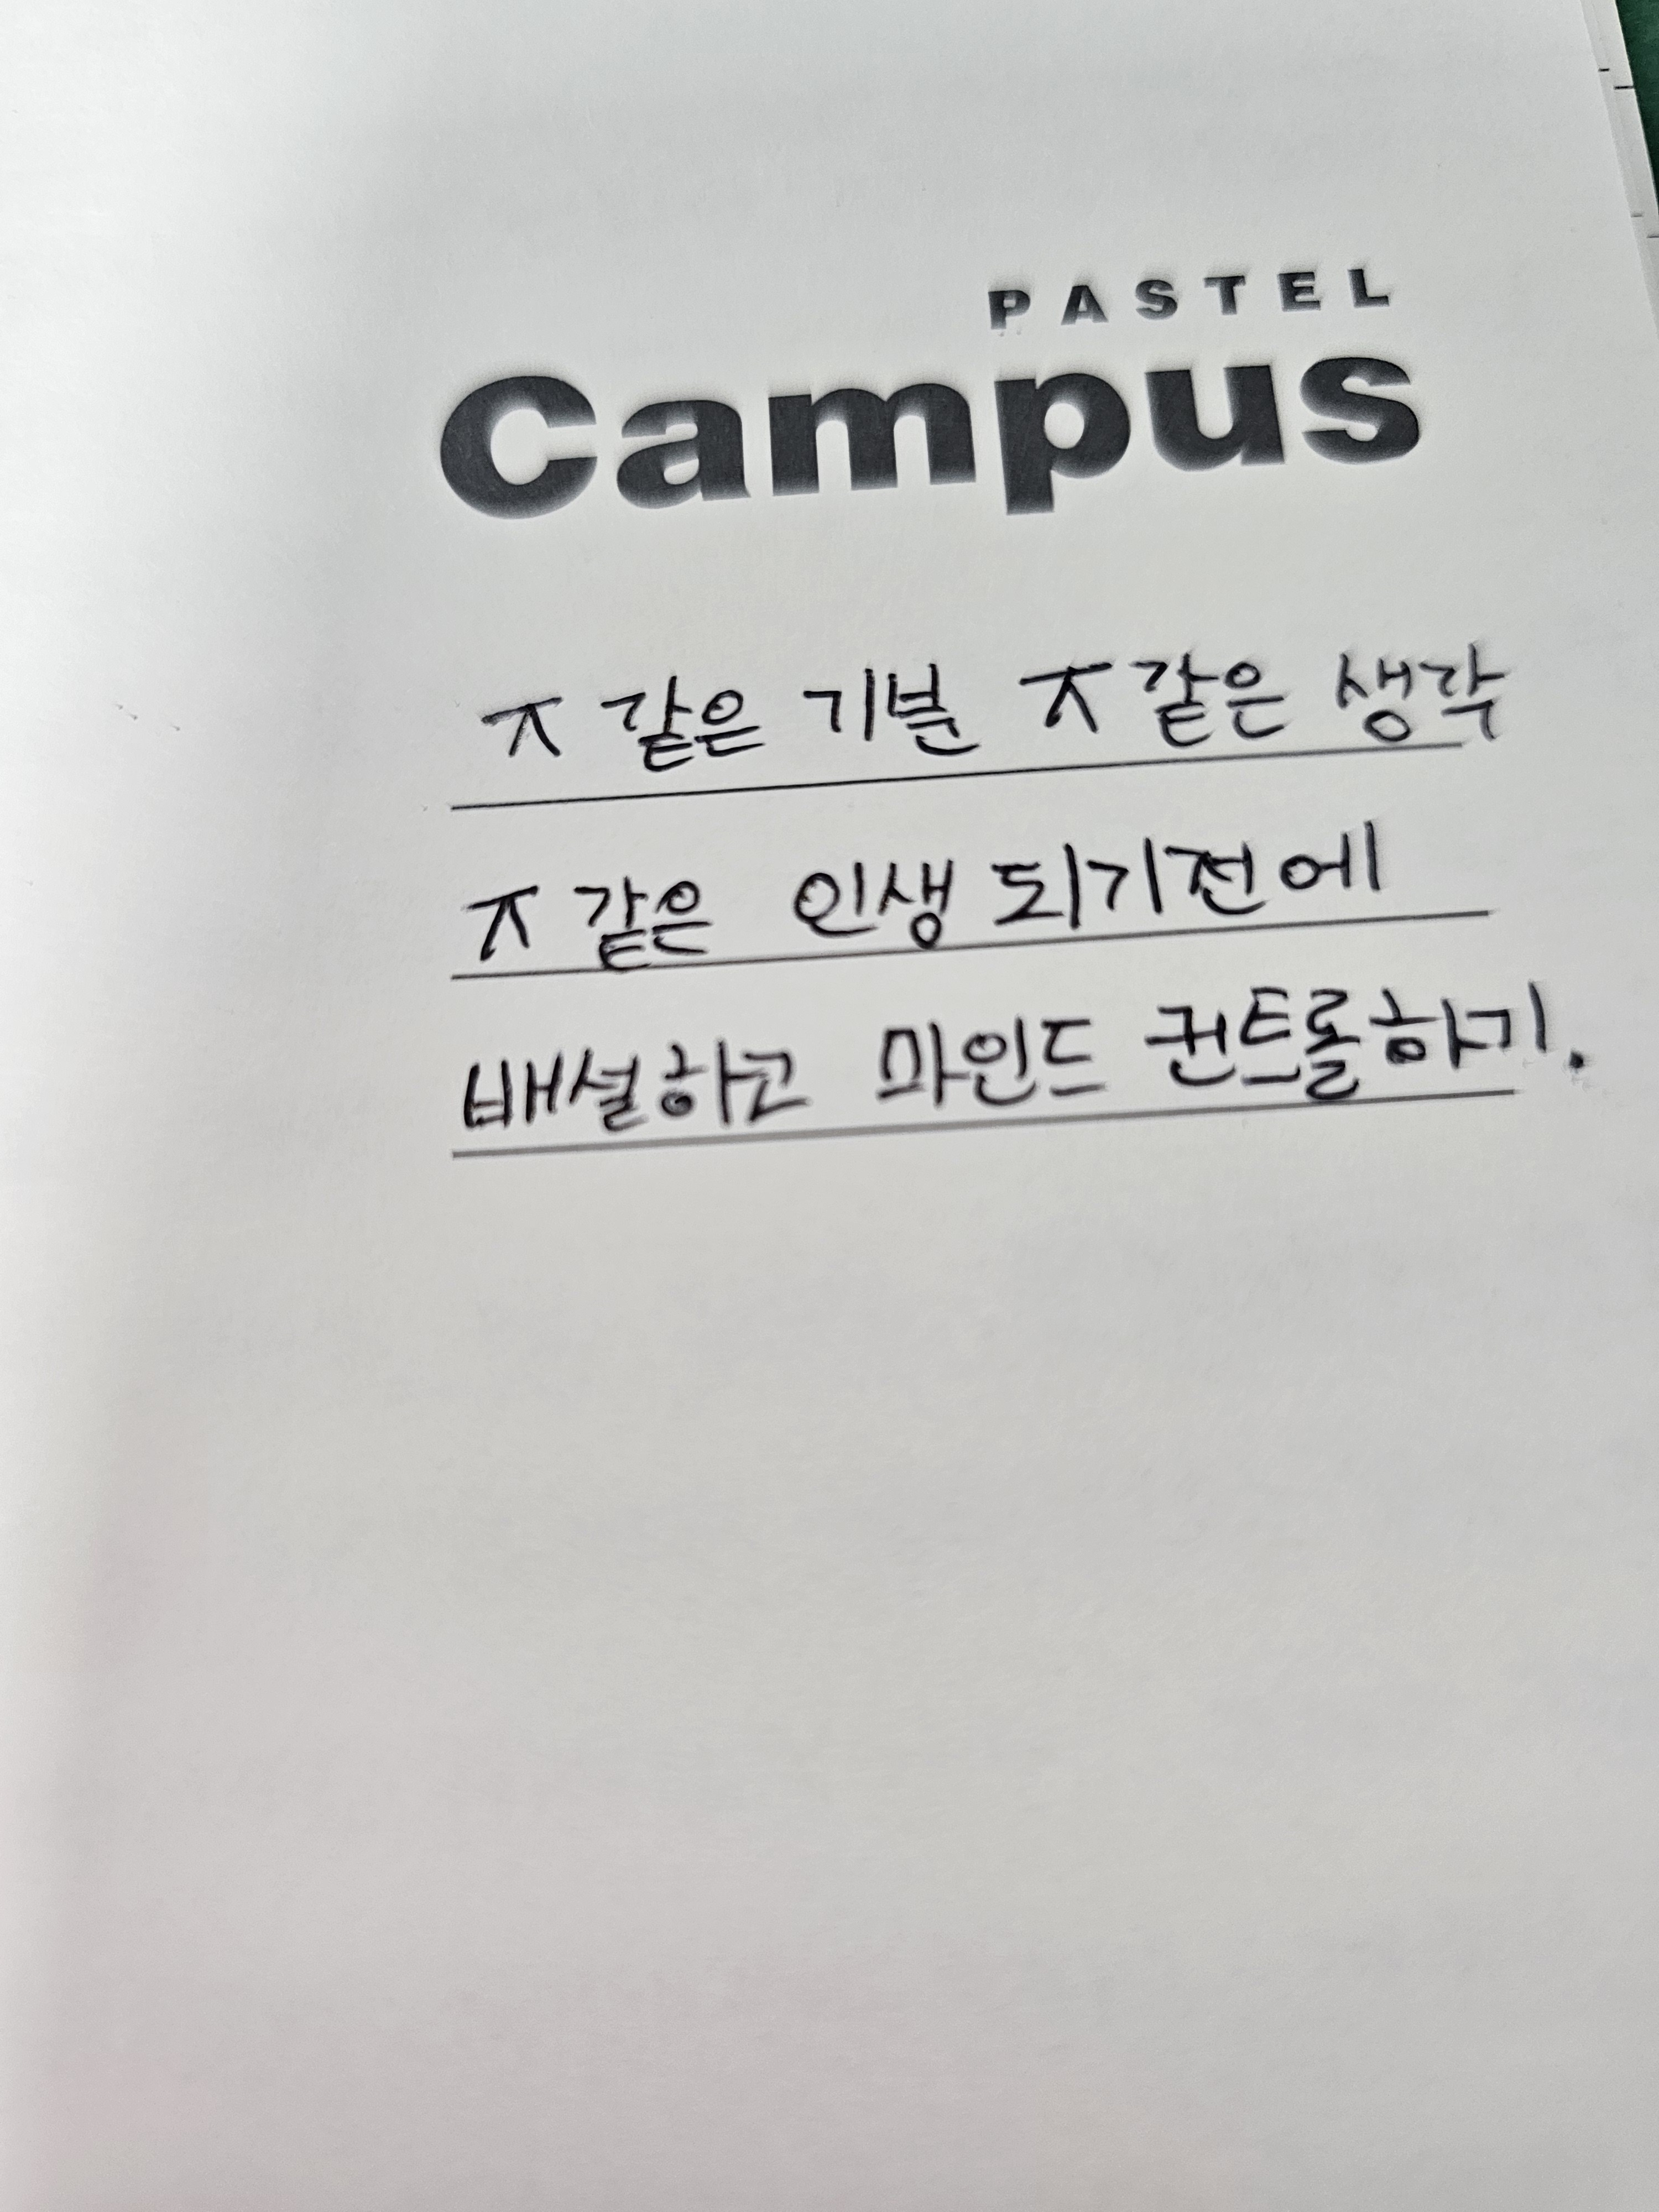 PASTEL
Campus
ㅈ같은 기분 ㅈ같은 생각
ㅈ같은 인생 되기전에
배설하고 마인드 컨트롤하기.